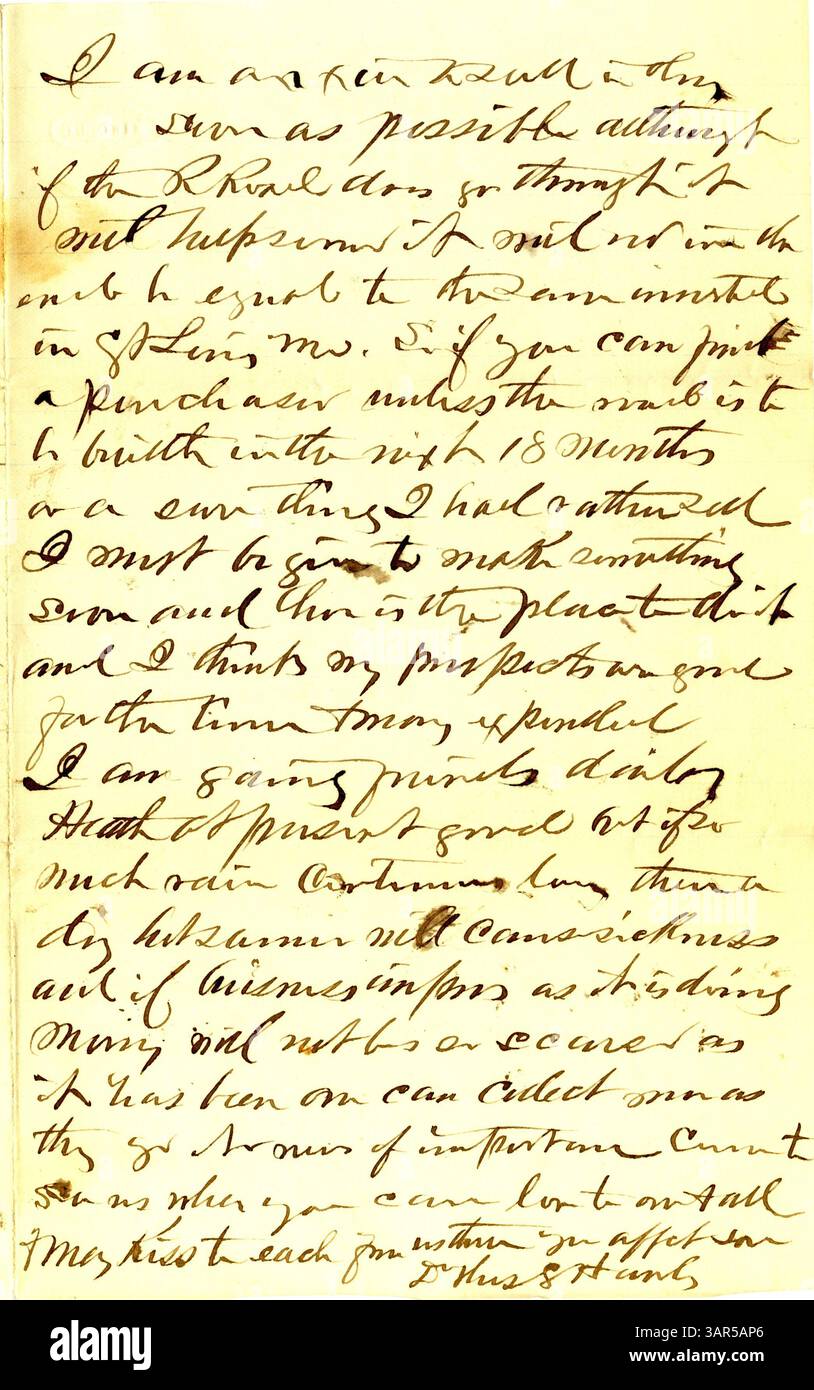 I am anxious to sell in
soon as possible although
if the R Road does go through it
will help some it will not in the
end be equal to the same invested
in St Louis Mo. So if you can find
a purchaser unless the road is to
be built in the next 18 months
or a sure thing I had rather sell
I must begin to make something
soon and here is the place to do it
and I think my prospects are good
for the time & money expended
I am gaining friends daily
Health at present good but if so
much rain continues long then a
dry hot summer will cause sickness
and if business improves as it is doing
Money will not be so scarce as
it has been one can collect more as
they go No news of importance Come to
see us when you can love to one & all
& May Kiss to each from us then your affect son
alamy
Image ID: 3AR5AP6
www.alamy.com